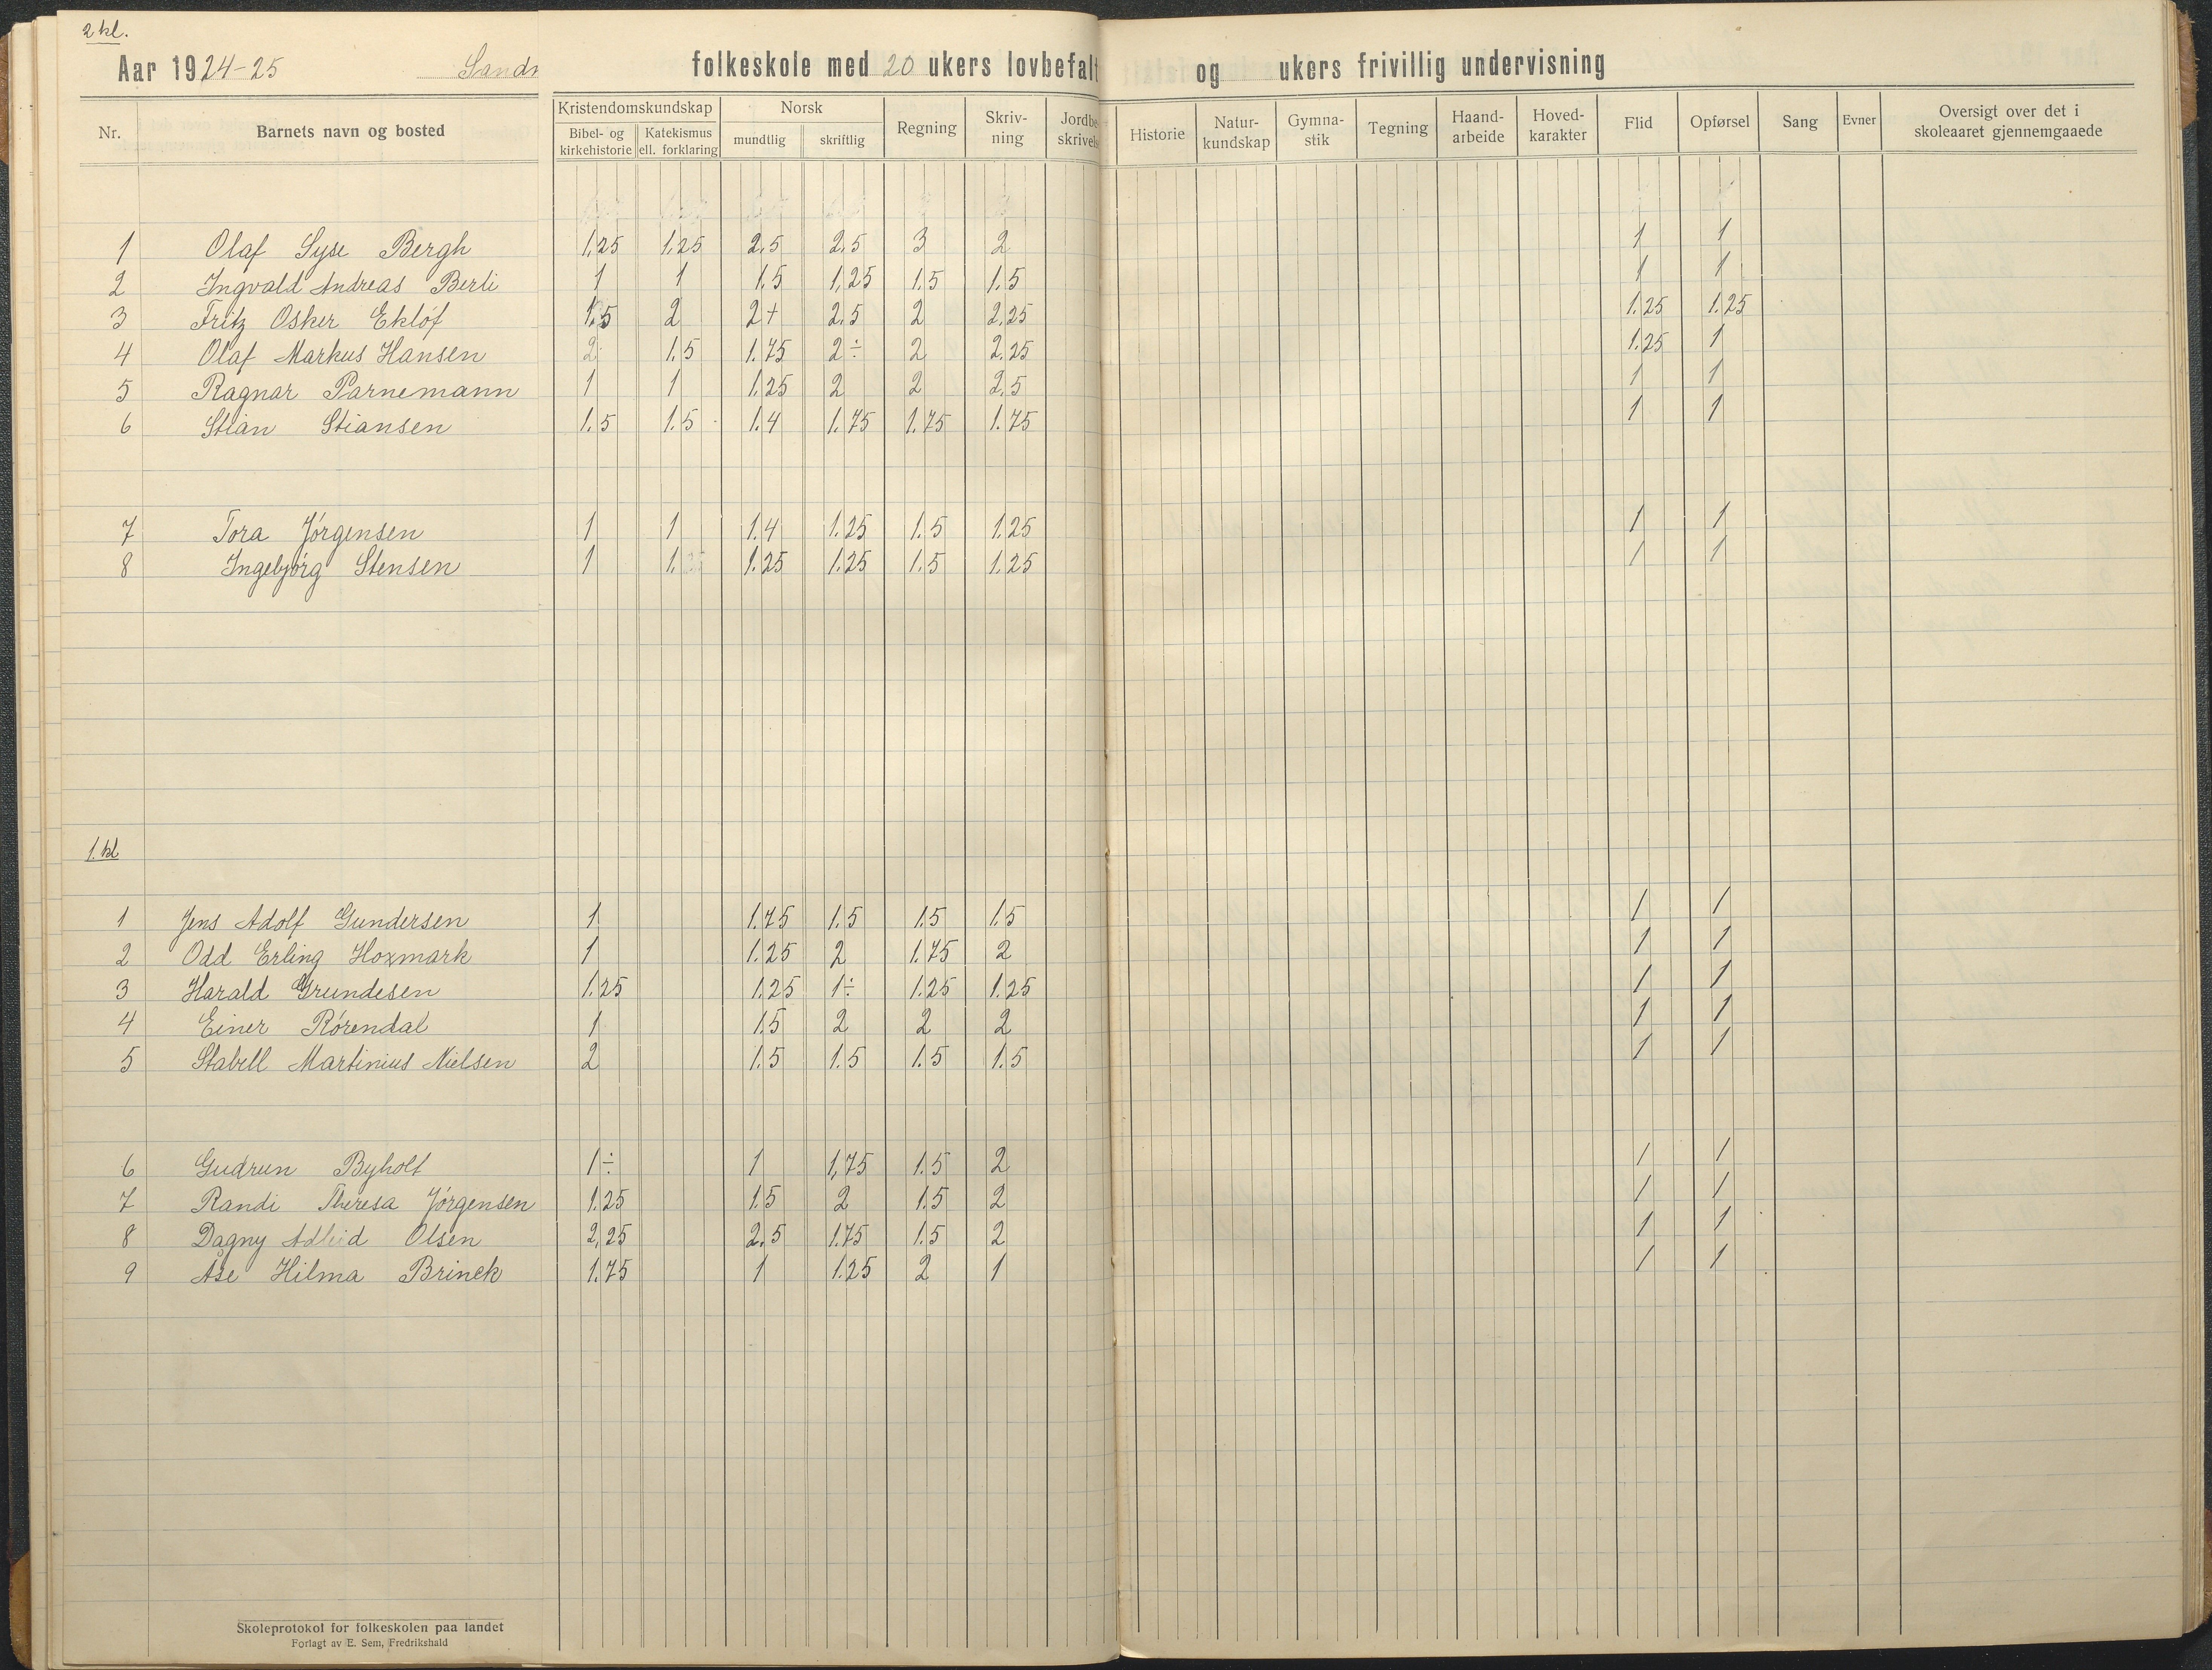 2 kl.
Aar 1924-25 Sandn folkeskole med 20 ukers lovbefalt og ukers frivillig undervisning
Nr. Barnets navn og bosted Kristendomskundskap Bibel- og kirkehistorie Katekismus ell. forklaring Norsk mundtlig skriftlig Regning Skriv-ning Jordbe-skrivels Historie Natur-kundskap Gymna-stik Tegning Haand-arbeide Hoved-karakter Flid Opførsel Sang Evner Oversigt over det i skoleaaret gjennemgaaede
1 Olaf Syse Bergh 1,25 1,25 2,5 2,5 3 2 1 1
2 Ingvald Andreas Berli 1 1 1,5 1,25 1,5 1,5 1 1
3 Fritz Osker Eklöf 1,5 2 2+ 2,5 2 2,25 1,25 1,25
4 Olaf Markus Hansen 2 1,5 1.75 2÷ 2 2.25 1.25 1
5 Ragnar Parnemann 1 1 1,25 2 2 2,5 1 1
6 Stian Stiansen 1.5 1.5 1.4 1.75 1.75 1.75 1 1
7 Tora Jörgensen 1 1 1.4 1.25 1.5 1.25 1 1
8 Ingebjörg Stensen 1 1.25 1.25 1.25 1.5 1.25 1 1
1. kl
1 Jens Adolf Gundersen 1 1.75 1.5 1.5 1.5 1 1
2 Odd Erling Hoxmark 1 1.25 2 1.75 2 1 1
3 Harald Grundesen 1.25 1.25 1÷ 1.25 1.25 1 1
4 Einer Rörendal 1 1.5 2 2 2 1 1
5 Stabell Martinius Nielsen 2 1.5 1.5 1.5 1.5 1 1
6 Gudrun Byholt 1÷ 1 1,75 1.5 2 1 1
7 Randi Theresa Jörgensen 1.25 1.5 2 1.5 2 1 1
8 Dagny Adleid Olsen 2,25 2,5 1.75 1.5 2 1 1
9 Åse Hilma Brinck 1.75 1 1.25 2 1 1 1
Skoleprotokol for folkeskolen paa landet
Forlagt av E. Sem, Fredrikshald